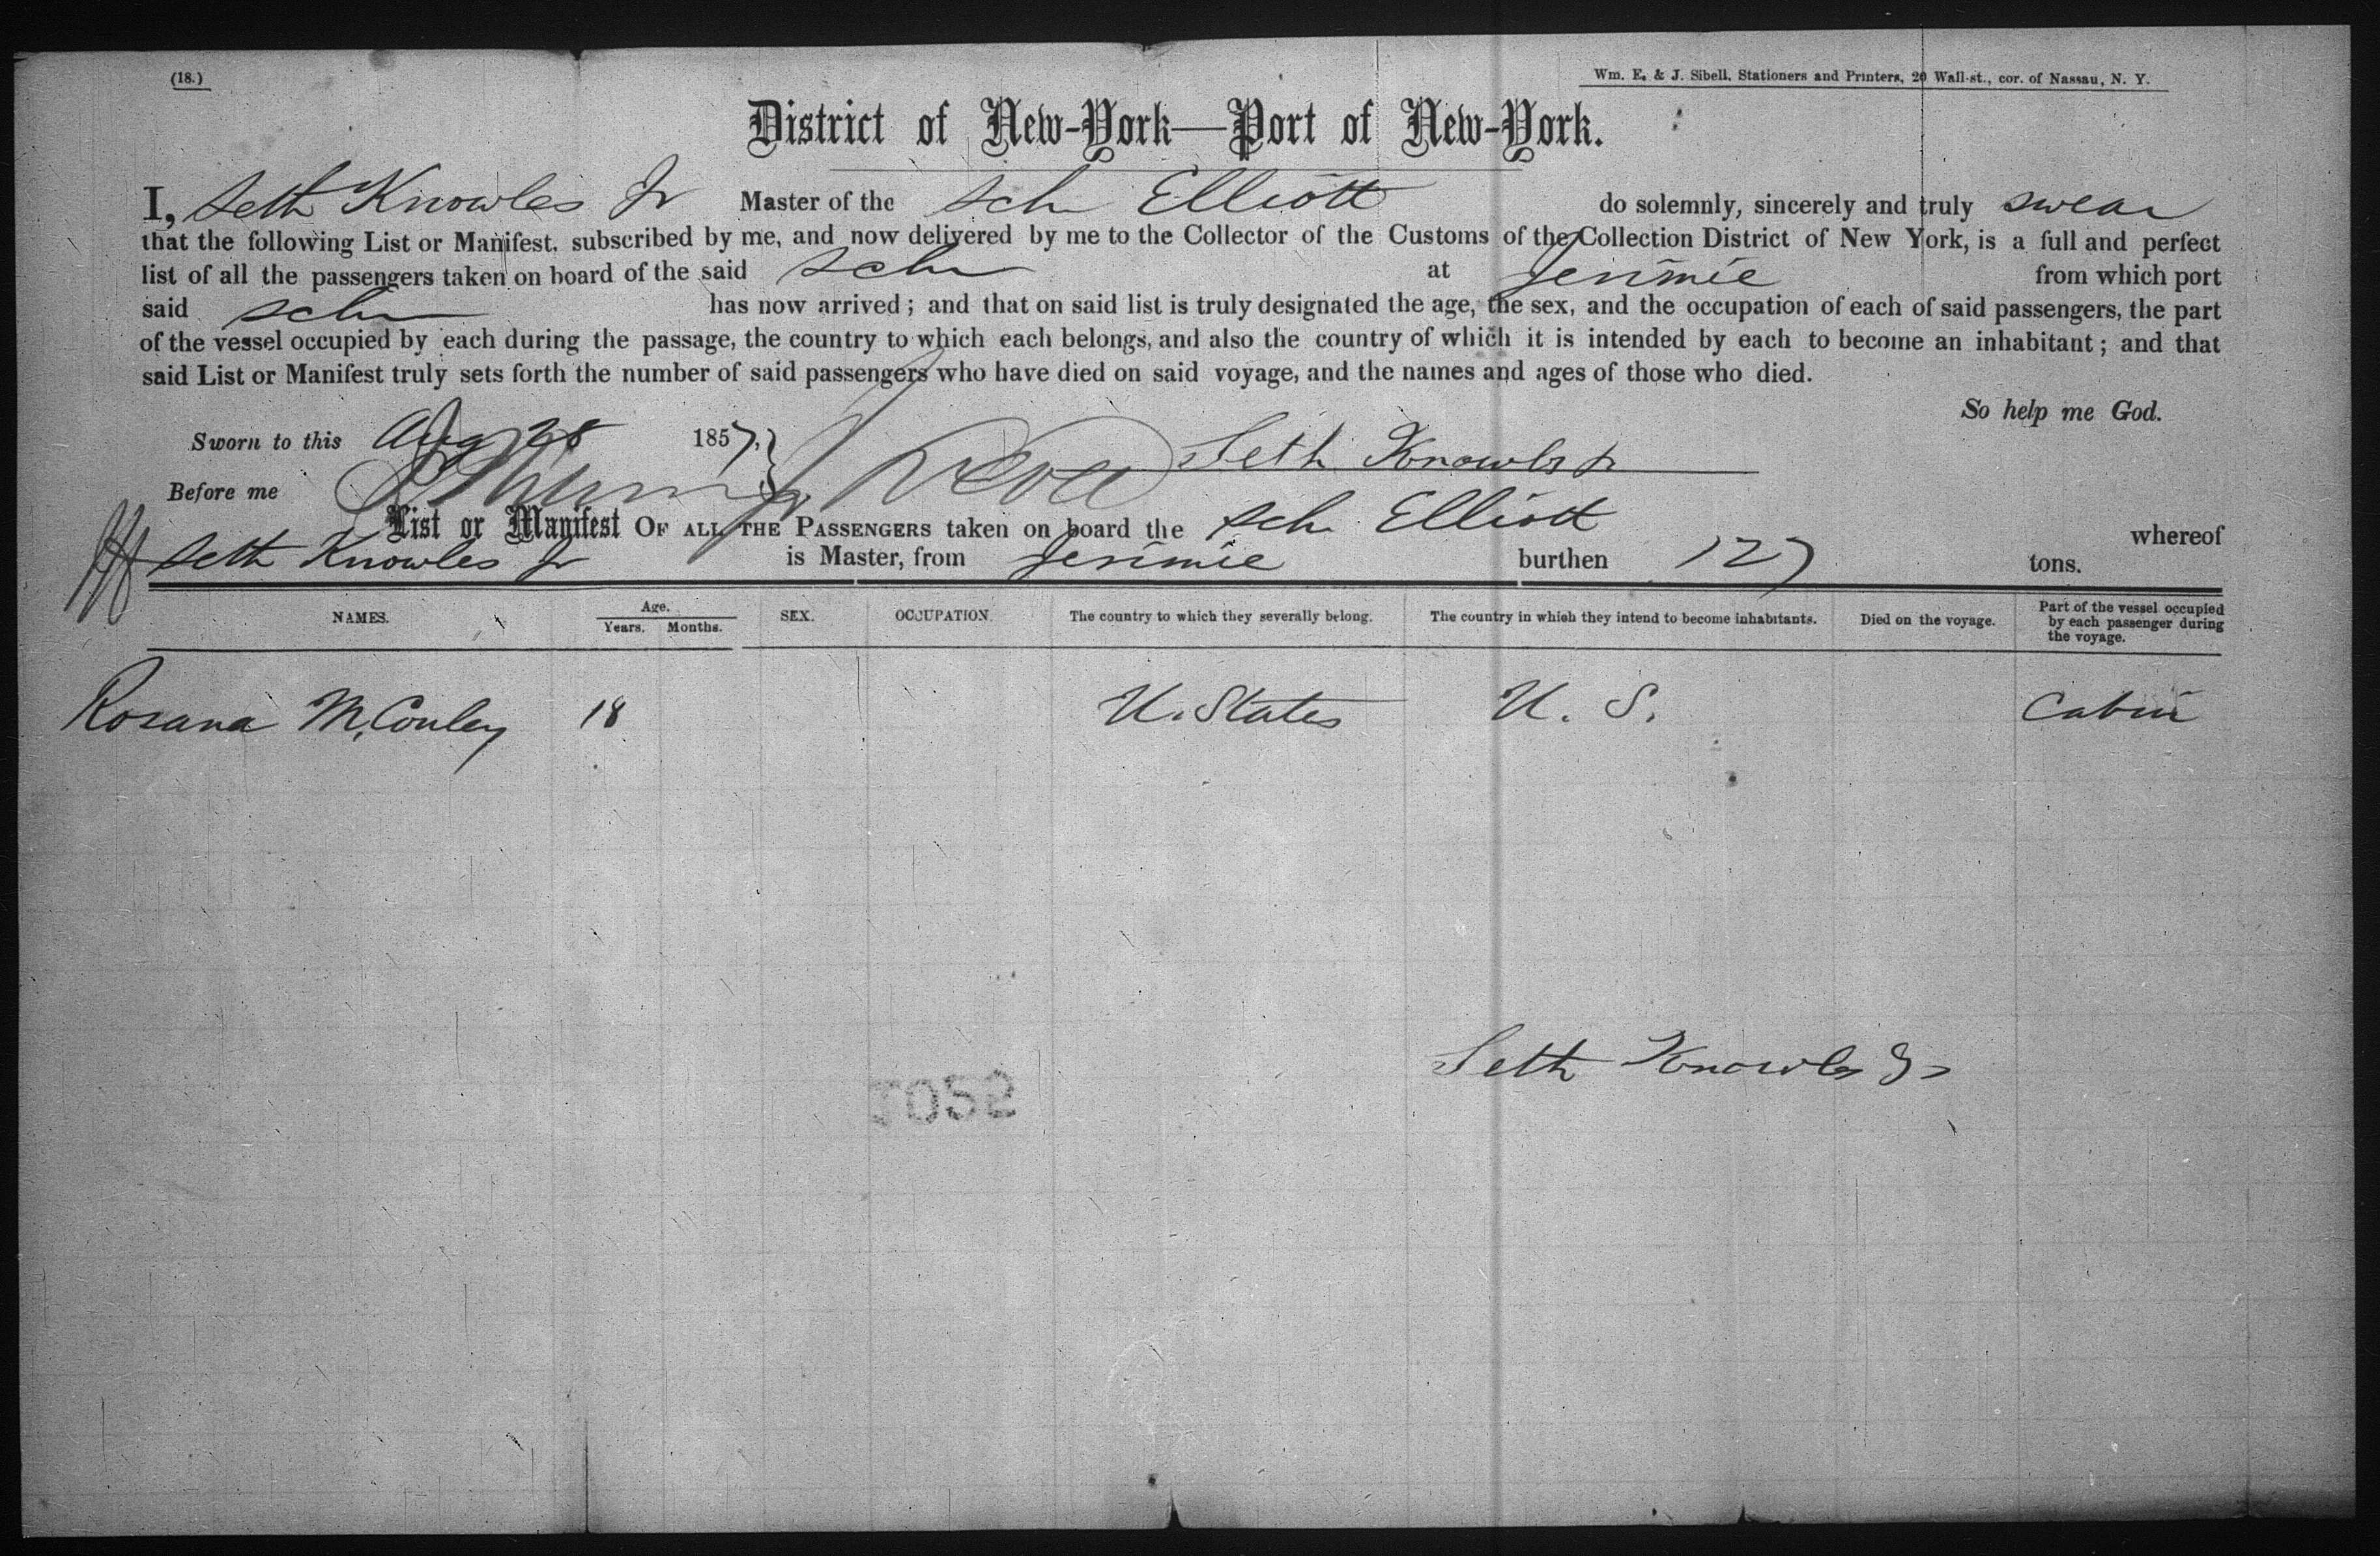 (18.)
Wm. E. & J. Sibell, Stationers and Printers, 20 Wall-st., cor. of Nassau, N. Y.
District of New-York—Port of New-York.
I, Seth Knowles Jr Master of the Sch Elliott do solemnly, sincerely and truly swear
that the following List or Manifest, subscribed by me, and now delivered by me to the Collector of the Customs of the Collection District of New York, is a full and perfect
list of all the passengers taken on board of the said Sch at Jerimie from which port
said Sch has now arrived; and that on said list is truly designated the age, the sex, and the occupation of each of said passengers, the part
of the vessel occupied by each during the passage, the country to which each belongs, and also the country of which it is intended by each to become an inhabitant; and that
said List or Manifest truly sets forth the number of said passengers who have died on said voyage, and the names and ages of those who died.
So help me God.
Sworn to this Aug 28 1857, Seth Knowles Jr
Before me
List or Manifest OF ALL THE PASSENGERS taken on board the Sch Elliott whereof
Seth Knowles Jr is Master, from Jerimie burthen 127 tons.
NAMES. Age. Years. Months. SEX. OCCUPATION. The country to which they severally belong. The country in which they intend to become inhabitants. Died on the voyage. Part of the vessel occupied by each passenger during the voyage.
Rosana McConley 18 U. States U. S. Cabin
Seth Knowles Jr